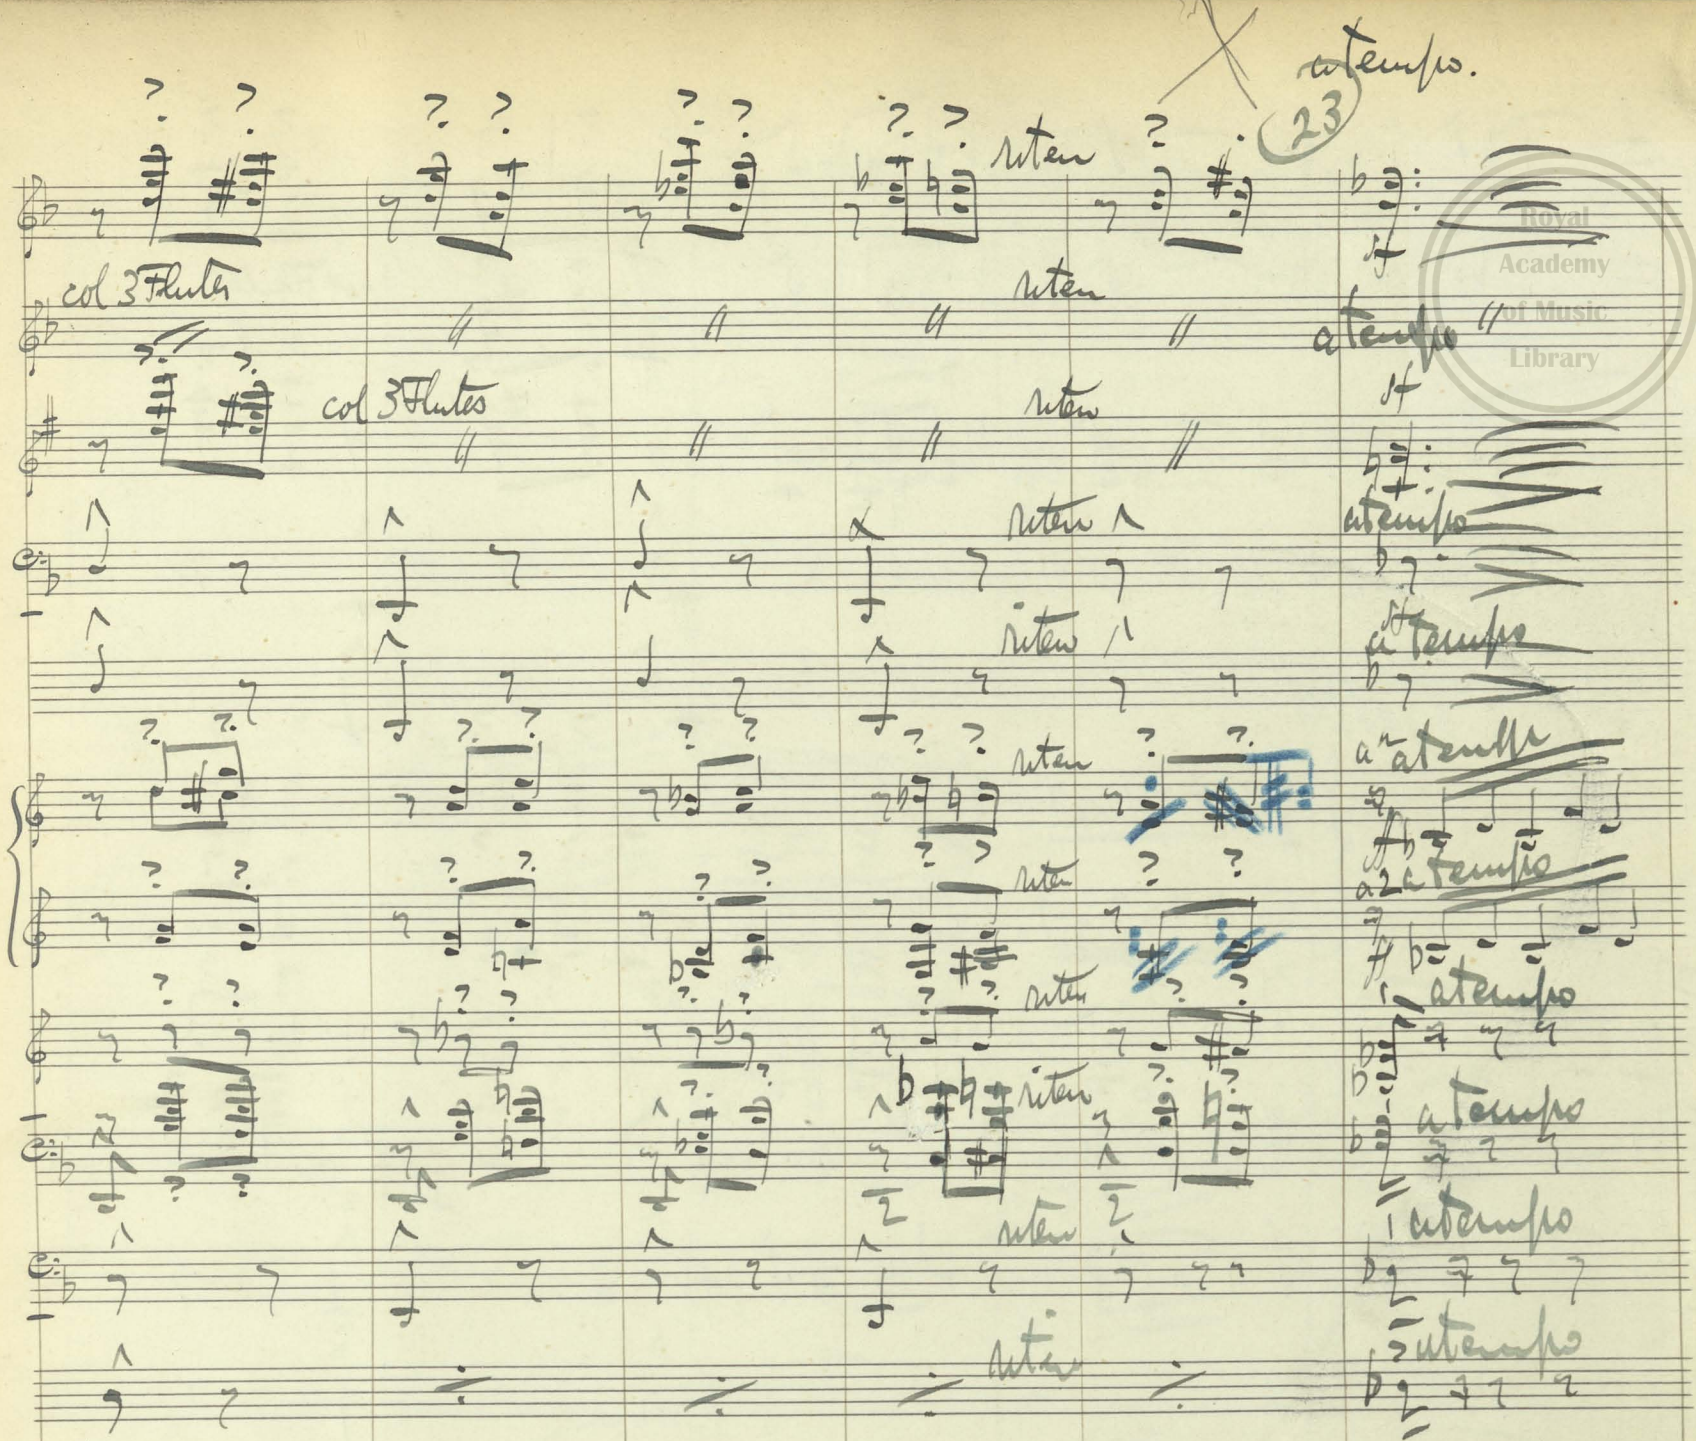 a tempo.
23
riten
sf
Royal
Academy
of Music
Library
col 3 Flutes
riten
a tempo
sf
col 3 Flutes
riten
riten
a tempo
sf
riten
a tempo
riten
a tempo
ff
riten
a2 a tempo
ff
riten
a tempo
riten
a tempo
riten
a tempo
riten
a tempo